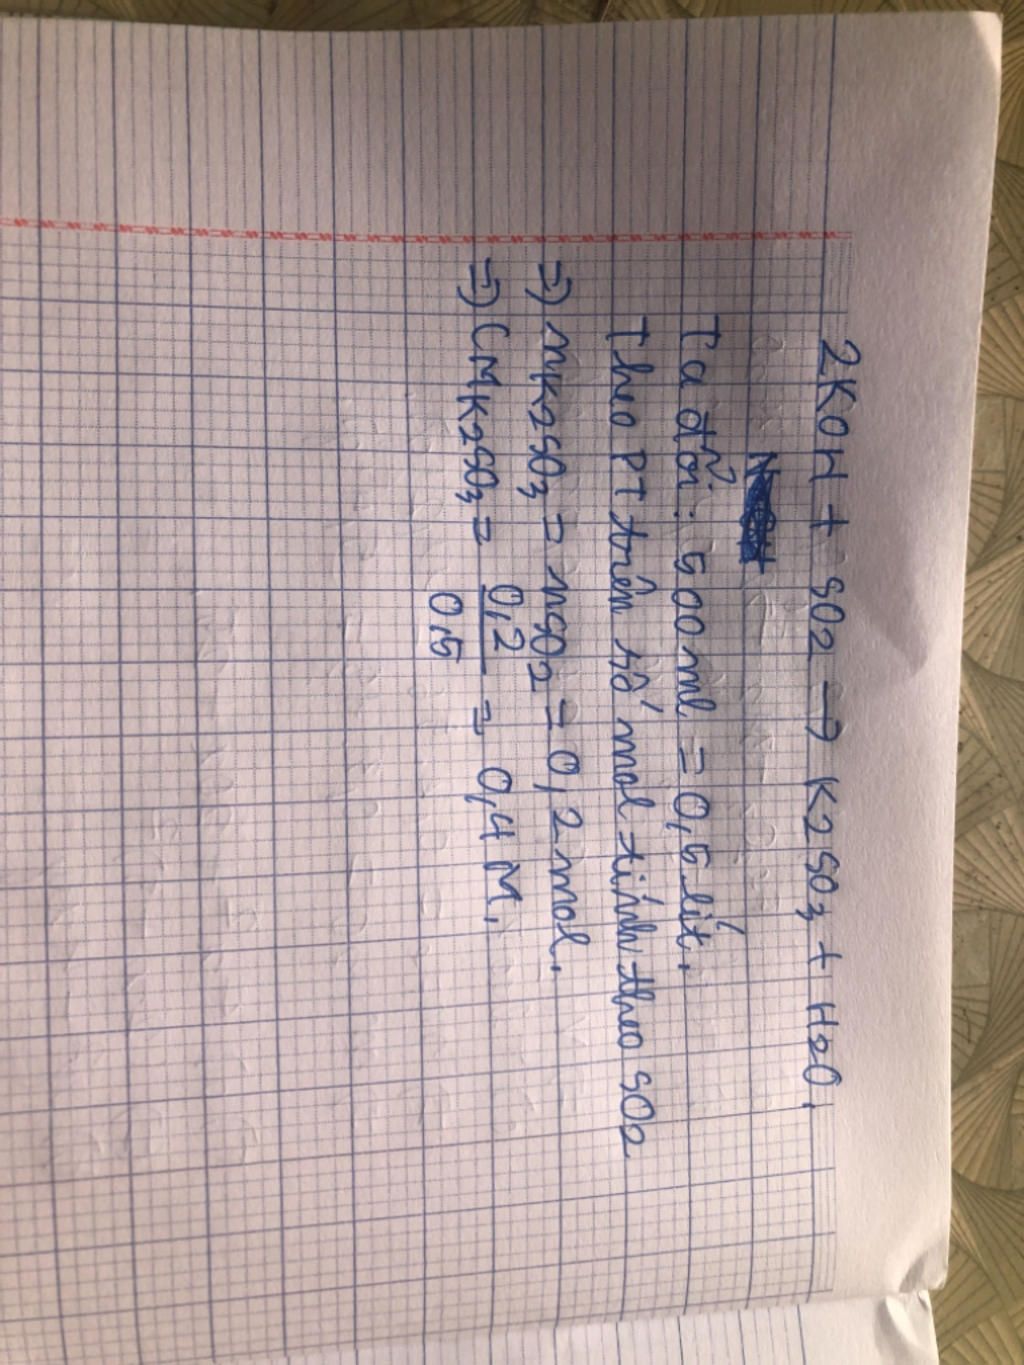 2KOH + SO2 → K2SO3 + H2O.
Ta đổi: 500ml = 0,5 lít.
Theo PT trên số mol tính theo SO2
=> nK2SO3 = nSO2 = 0,2mol.
=> CMK2SO3 = 0,2/0,5 = 0,4 M.